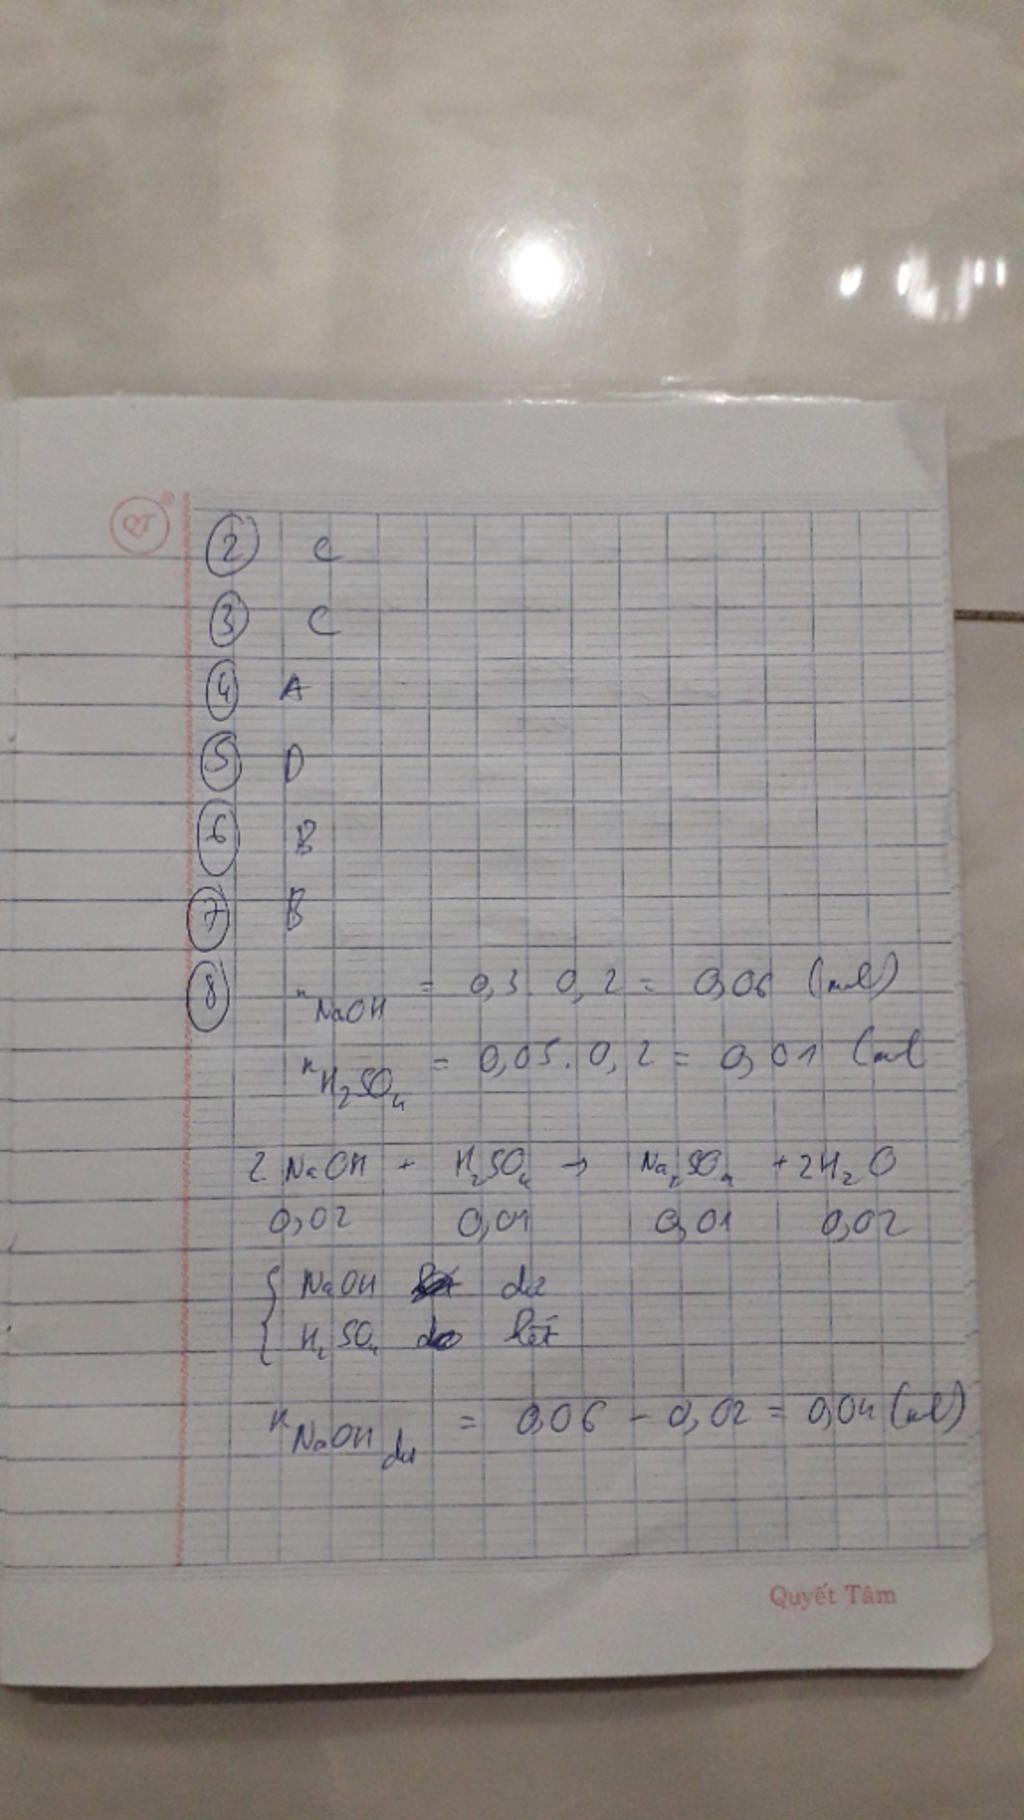 QT
② C
③ C
④ A
⑤ D
⑥ B
⑦ B
⑧ n NaOH = 0,3. 0,2 = 0,06 (mol)
n H₂SO₄ = 0,05. 0,2 = 0,01 (mol
2 NaOH + H₂SO₄ → Na₂SO₄ + 2H₂O
0,02 0,01 0,01 0,02
{ NaOH dư
H₂SO₄ hết
n NaOH dư = 0,06 - 0,02 = 0,04 (mol)
Quyết Tâm